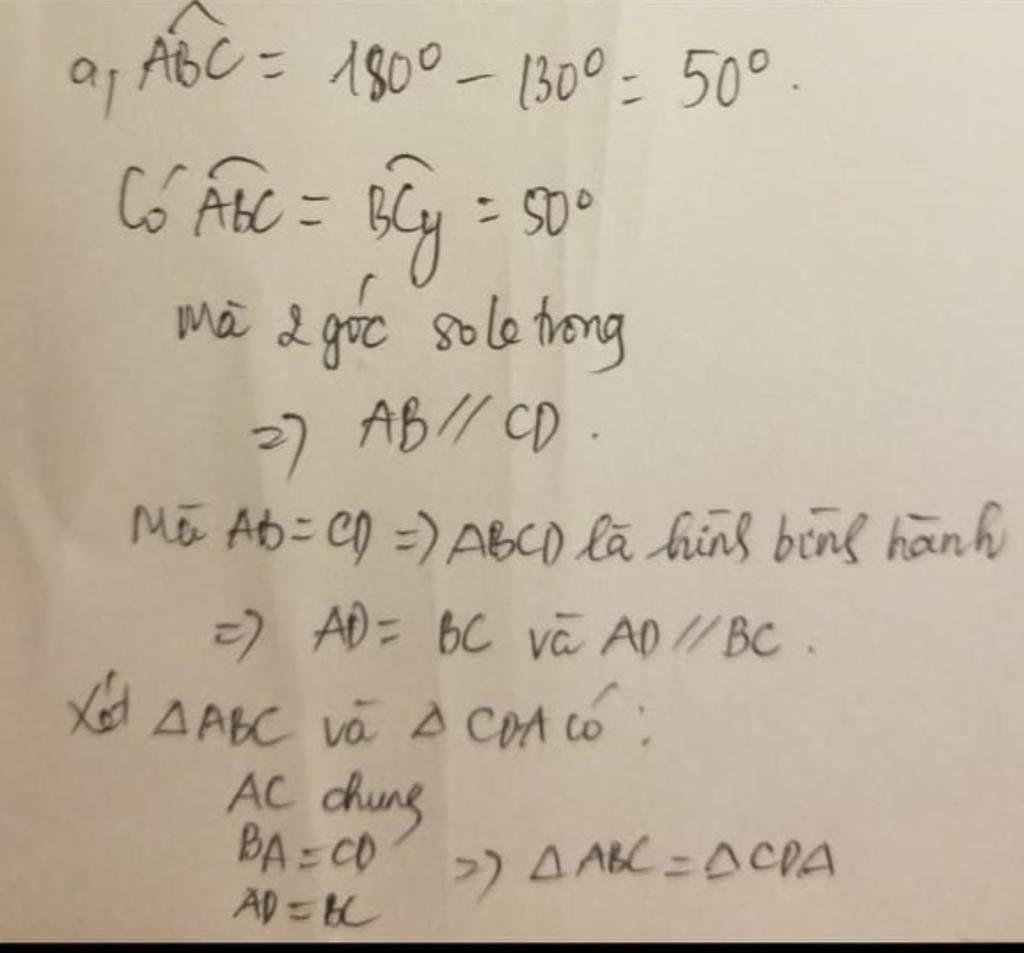 a, ABC = 180° - 130° = 50°.
Có ABC = BCy = 50°
Mà 2 góc so le trong
=> AB // CD.
Mà AB = CD => ABCD là hình bình hành
=> AD = BC và AD // BC.
Xét △ABC và △CDA có:
AC chung
BA = CD => △ABC = △CDA
AD = BC